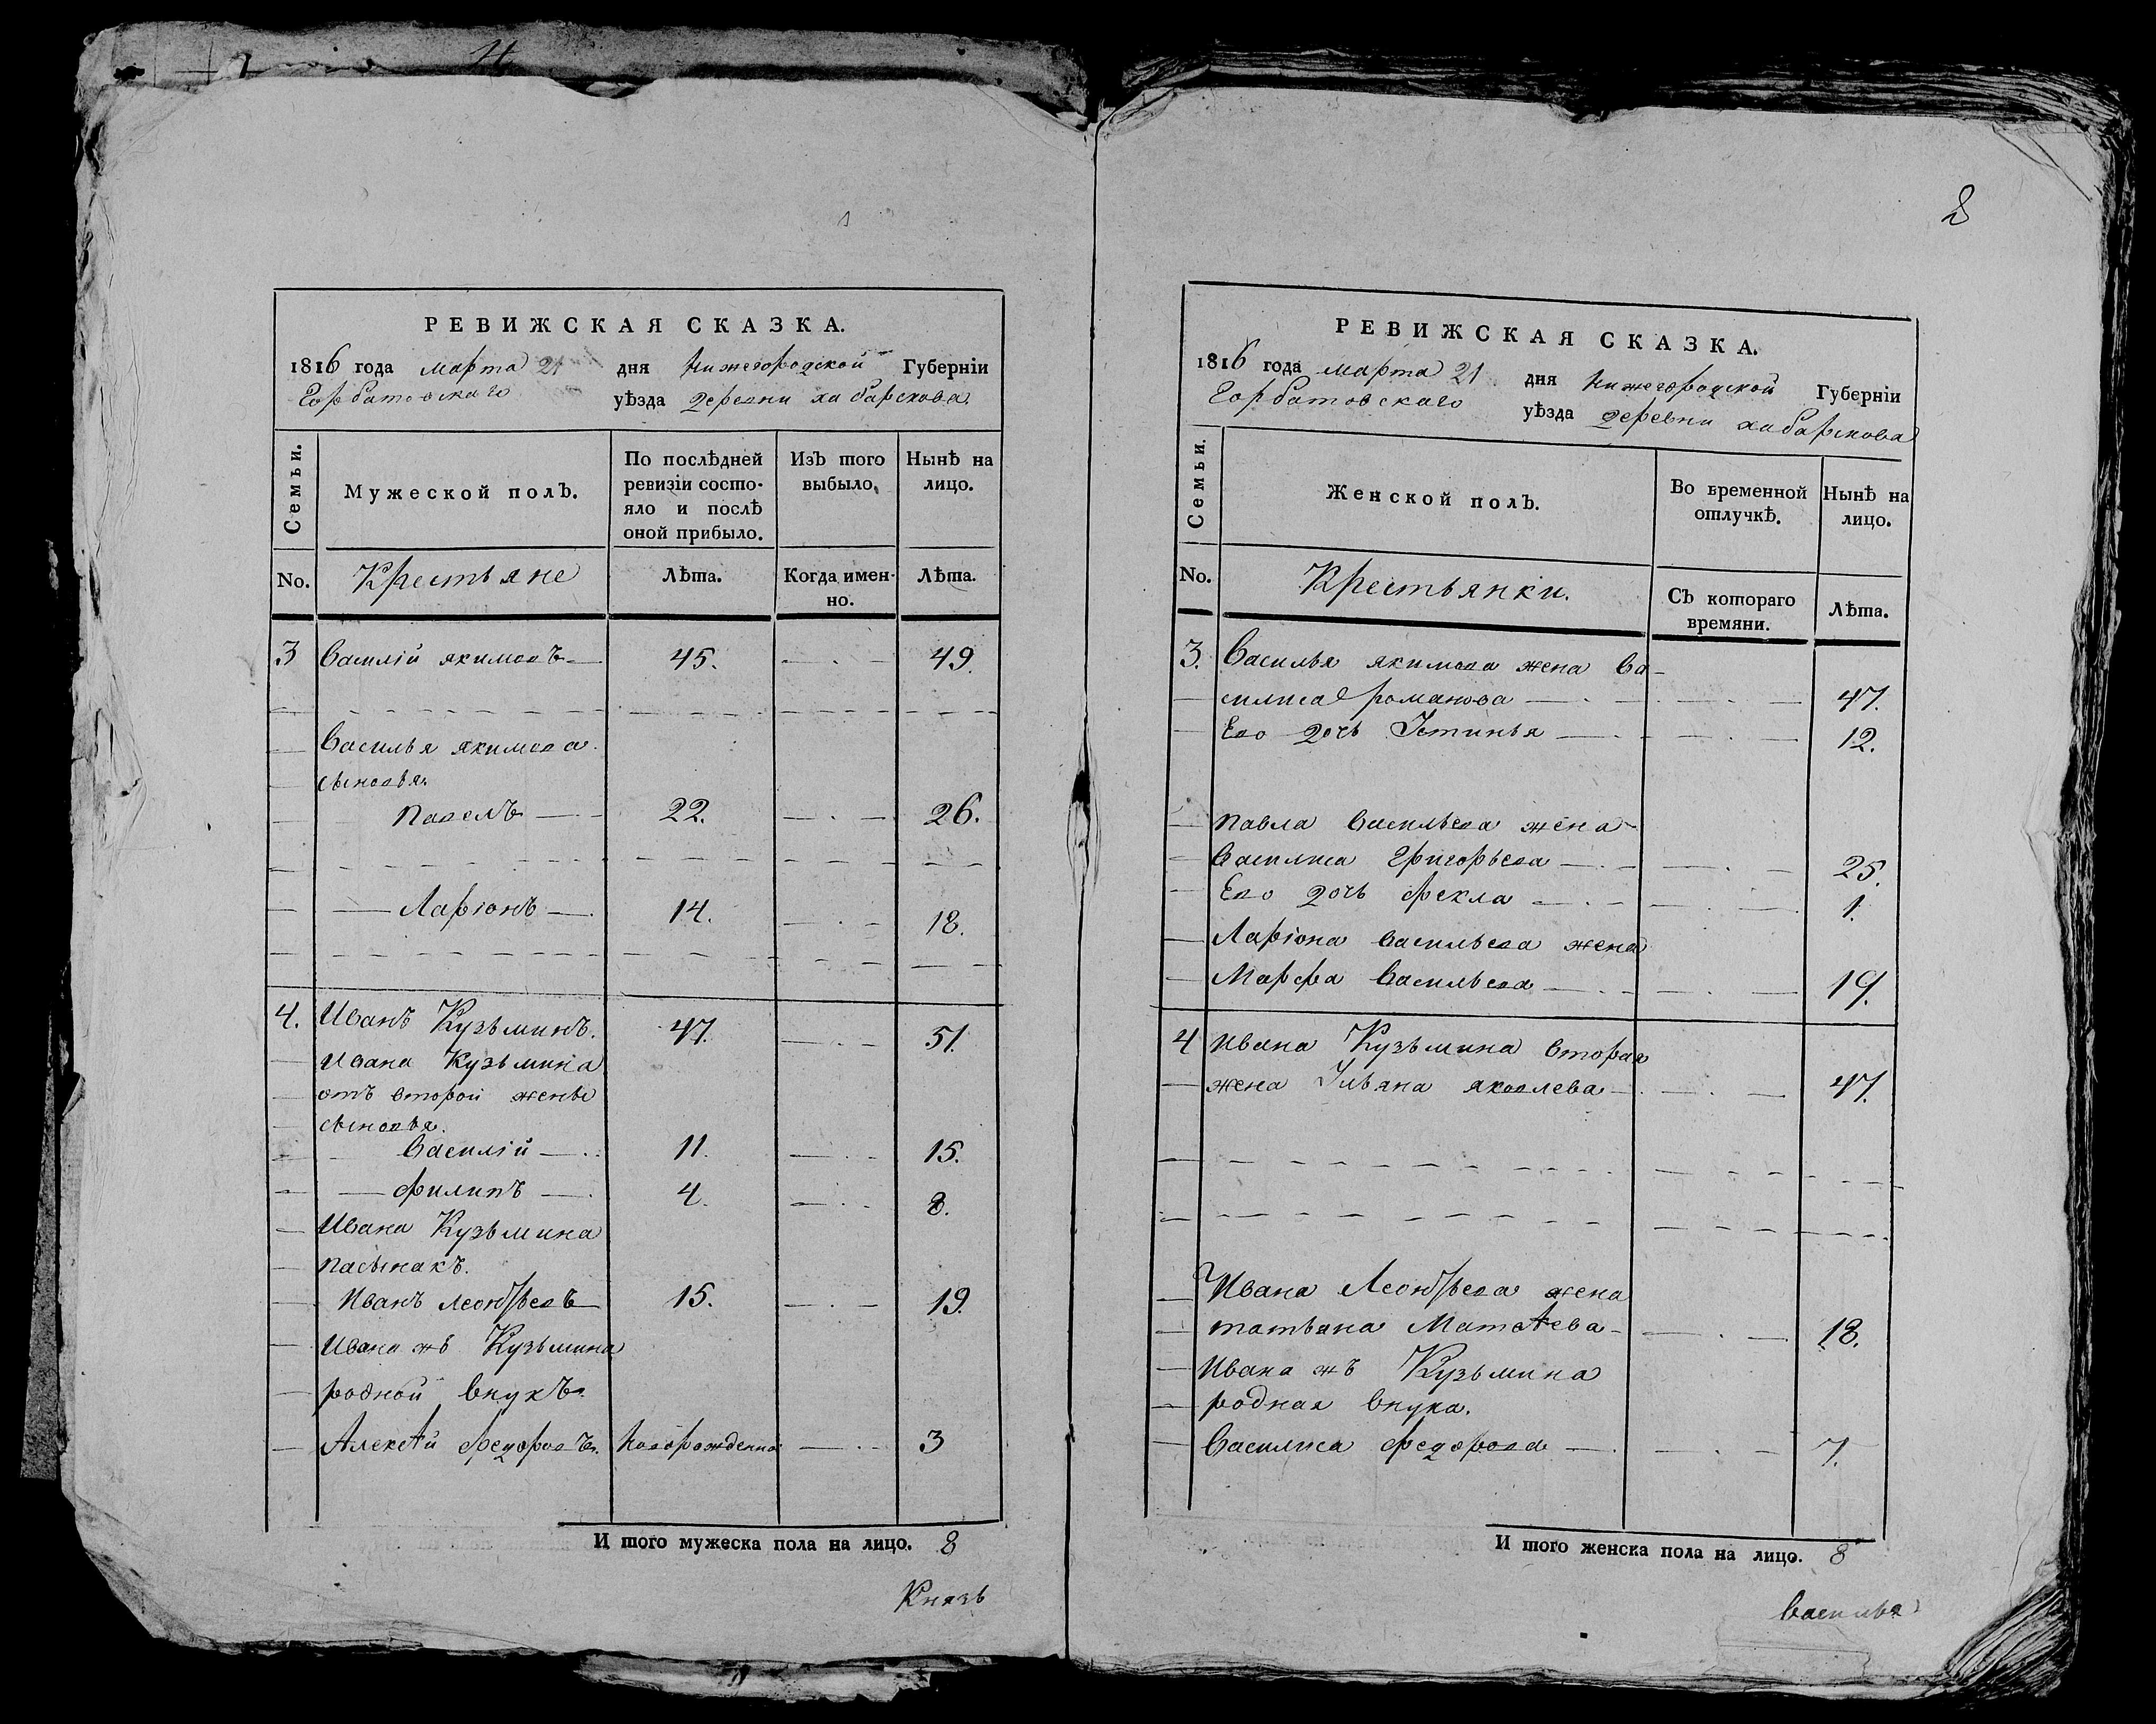 РЕВИЖСКАЯ СКАЗКА.
1816 года марта 21 дня Нижегородской Губерніи
Горбатовскаго уѣзда деревни хабарскова
Семьи.
Мужеской полЪ.
По послѣдней ревизіи состо-
яло и послѣ
оной прибыло.
ИзЪ того выбыло.
НынѢ на лицо.
No.
Крестьяне
Лѣта.
Когда имен-
но.
Лѣта.
3 Василій якимовъ 45. 49.
Василья якимова
сыновья.
павелъ 22. 26.
Ларіонъ 14. 18.
4. Иванъ Кузьминъ. 47. 51.
Ивана Кузьмина
отъ второй жены
сыновья.
Василій 11. 15.
филипъ 4. 8.
Ивана Кузьмина
пасынакъ.
Иванъ леонтьевъ 15. 19.
Ивана жъ Кузьмина
родной внукъ.
Алексѣй федоровъ. Новорожденной 3
И того мужеска пола на лицо. 8
Князь
2
РЕВИЖСКАЯ СКАЗКА.
1816 года марта 21 дня Нижегородской Губерніи
Горбатовскаго уѣзда деревни хабарскова
Семьи.
Женской полЪ.
Во временной
отлучкѣ.
НынѢ на
лицо.
No.
Крестьянки.
СЪ котораго
времяни.
Лѣта.
3. Василья якимова жена Ва-
силиса романова 47.
Ево дочь Устинья 12.
павла Васильева жена
Василиса григорьева 25.
Ево дочь фекла 1.
Ларіона Васильева жена
Марфа Васильева 19.
4 Ивана Кузьмина вторая
жена Ульяна яковлева 47.
Ивана Леонтьева жена
татьяна Матѣева 18.
Ивана жъ Кузьмина
родная внука.
Василиса федорова 7.
И того женска пола на лицо. 8
Василья